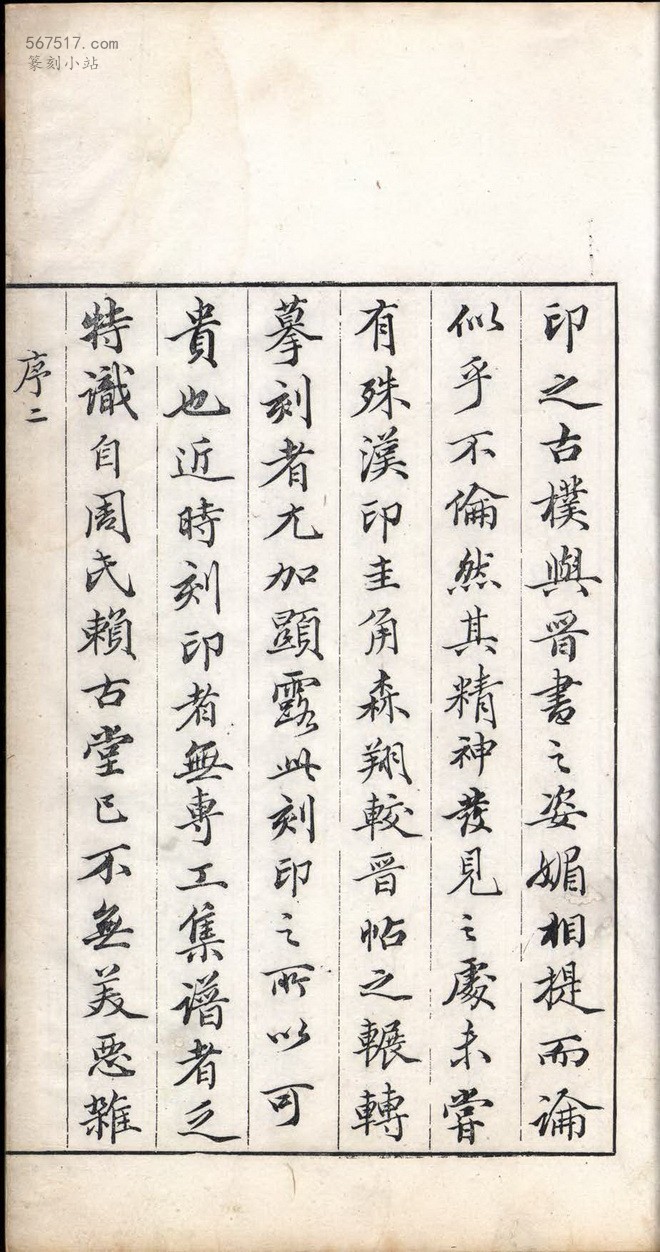 567517.com
篆刻小站
印之古樸與晉書之姿媚相提而論
似乎不倫然其精神發見之處未嘗
有殊漢印圭角森翔較晉帖之輾轉
摹刻者尤加顯露此刻印之所以可
貴也近時刻印者無專工集譜者乏
特識自周氏賴古堂已不無美惡雜
序二